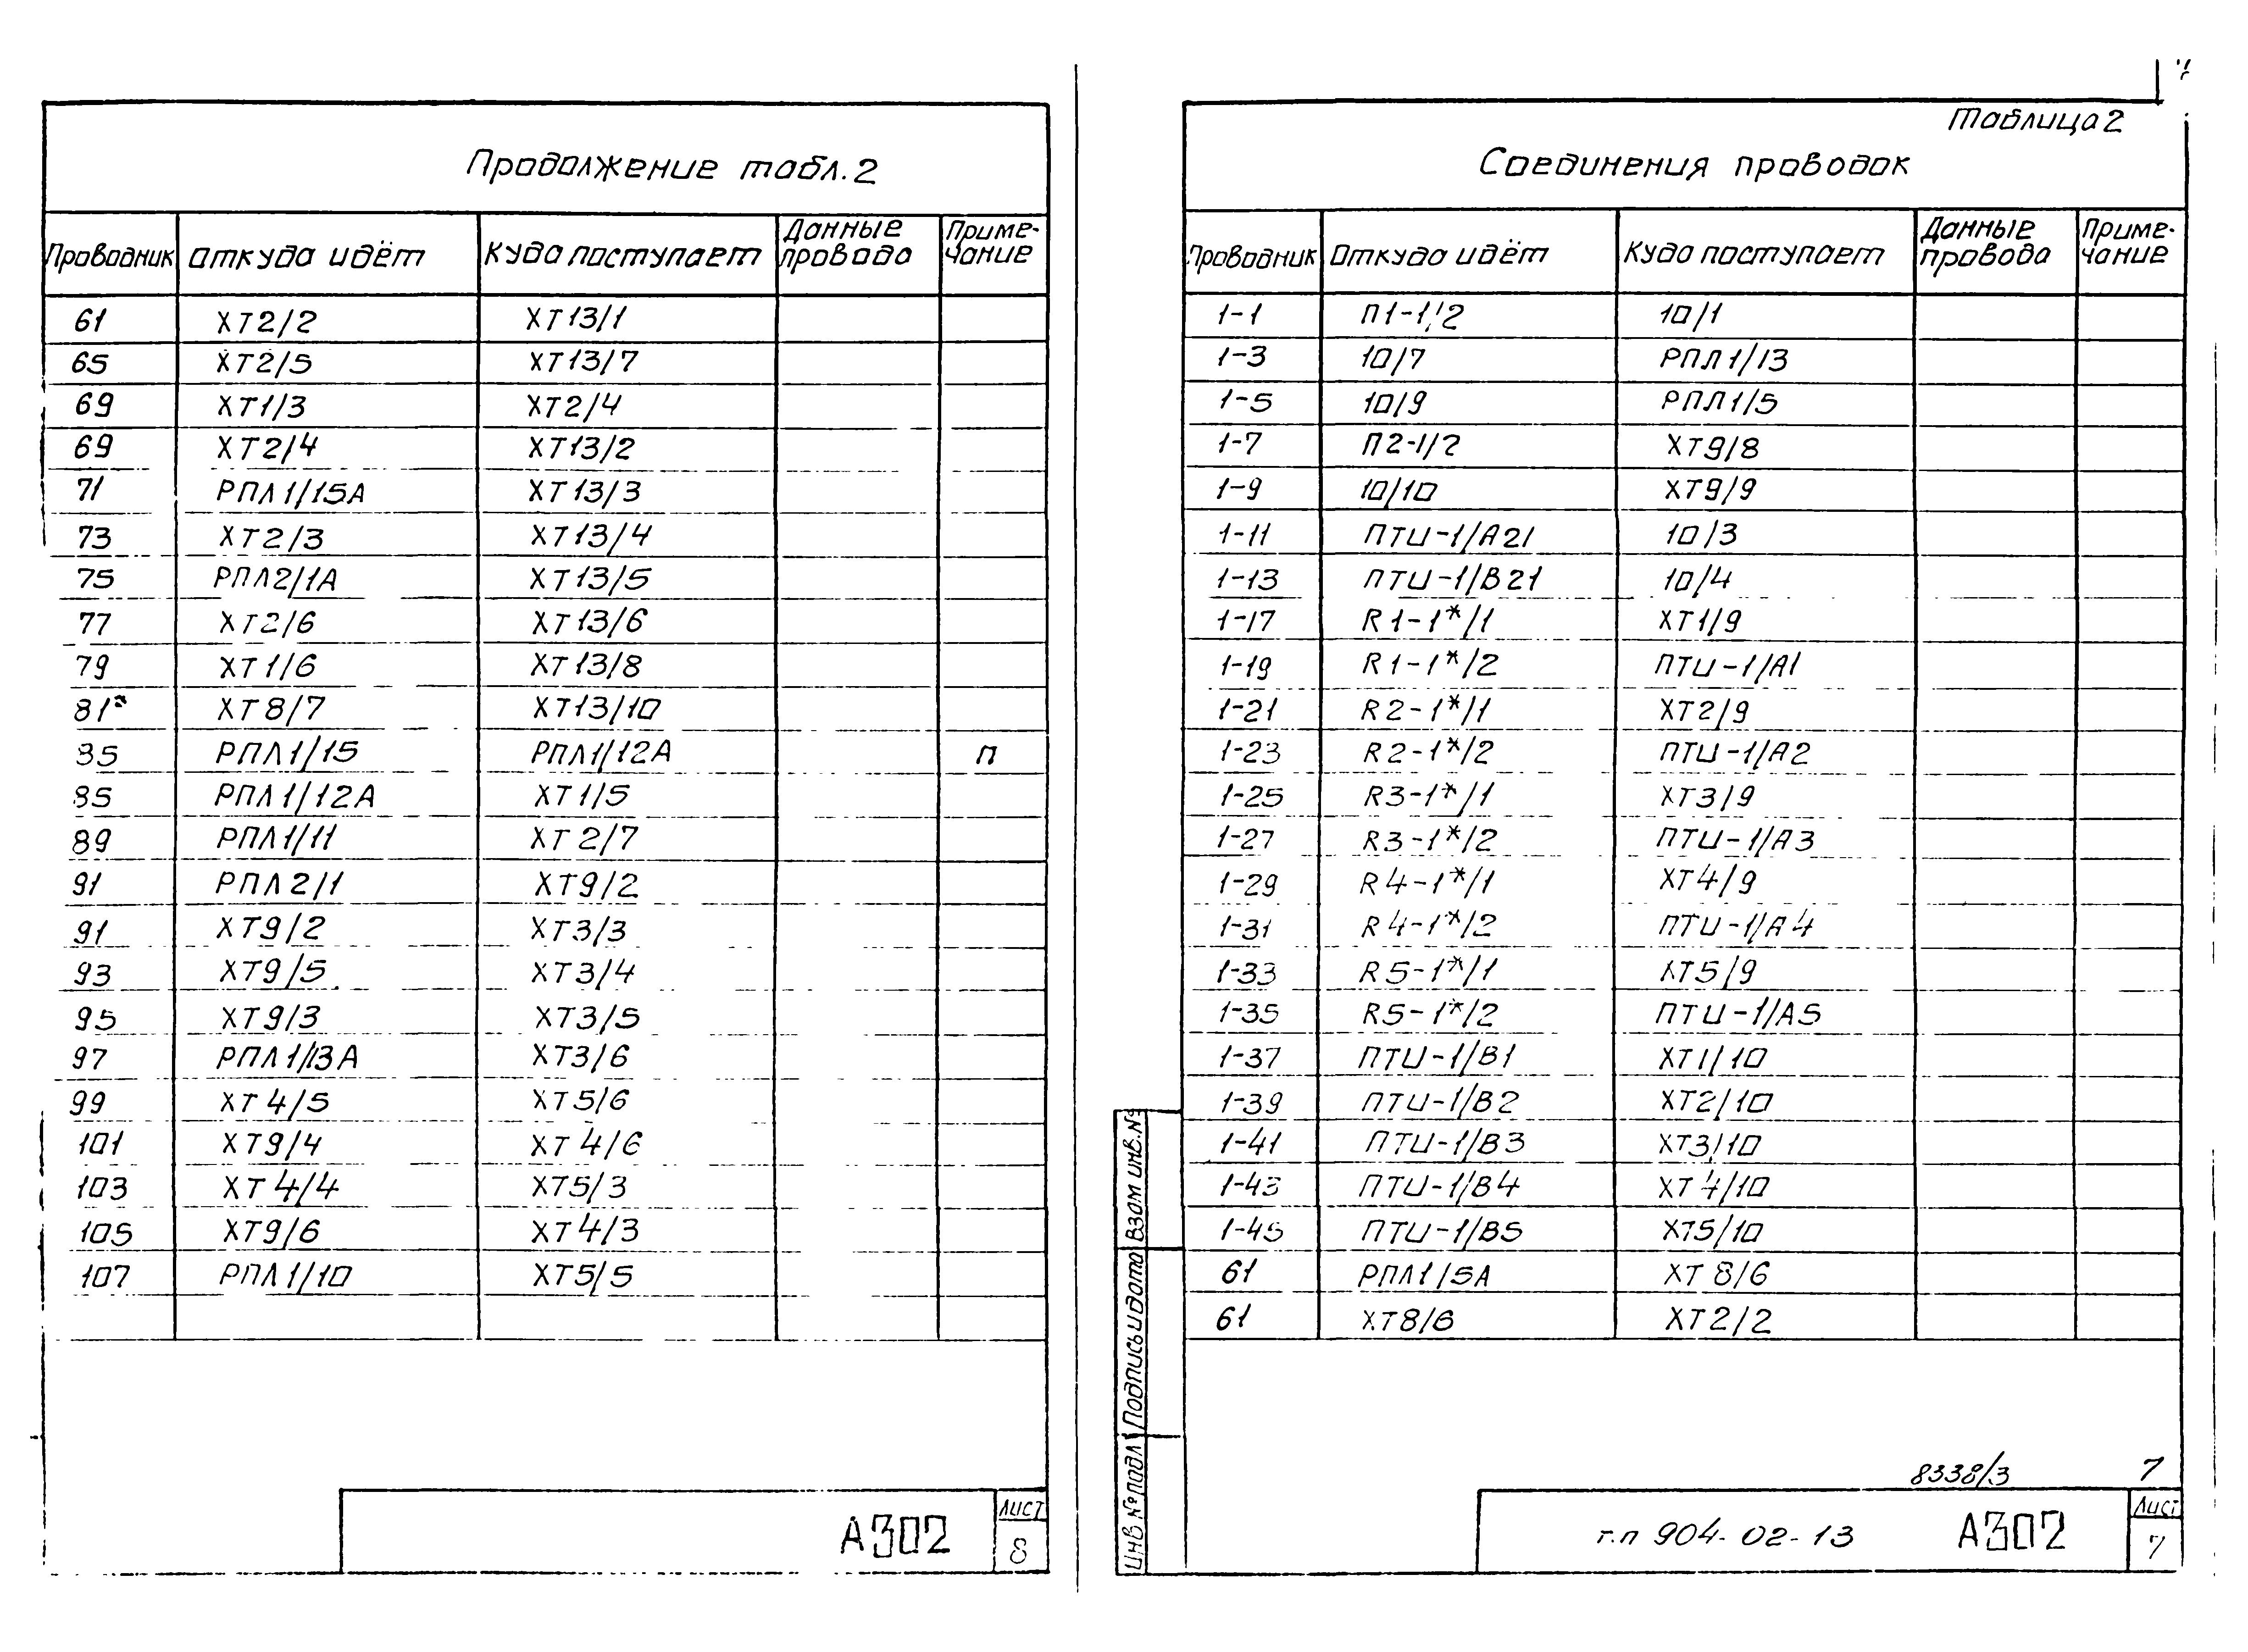 Продолжение табл.2
Проводник Откуда идёт Куда поступает Данные провода Примечание
61 ХТ2/2 ХТ13/1
65 ХТ2/5 ХТ13/7
69 ХТ1/3 ХТ2/4
69 ХТ2/4 ХТ13/2
71 РПЛ1/15А ХТ13/3
73 ХТ2/3 ХТ13/4
75 РПЛ2/1А ХТ13/5
77 ХТ2/6 ХТ13/6
79 ХТ1/6 ХТ13/8
81 ХТ8/7 ХТ13/10
85 РПЛ1/15 РПЛ1/12А П
85 РПЛ1/12А ХТ1/5
89 РПЛ1/11 ХТ2/7
91 РПЛ2/1 ХТ9/2
91 ХТ9/2 ХТ3/3
93 ХТ9/5 ХТ3/4
95 ХТ9/3 ХТ3/5
97 РПЛ1/13А ХТ3/6
99 ХТ4/5 ХТ5/6
101 ХТ9/4 ХТ4/6
103 ХТ4/4 ХТ5/3
105 ХТ9/6 ХТ4/3
107 РПЛ1/10 ХТ5/5
А302
Лист
8
Таблица 2
Соединения проводок
Проводник Откуда идёт Куда поступает Данные провода Примечание
1-1 П1-1/2 10/1
1-3 10/7 РПЛ1/13
1-5 10/9 РПЛ1/5
1-7 П2-1/2 ХТ9/8
1-9 10/10 ХТ9/9
1-11 ПТИ-1/А21 10/3
1-13 ПТИ-1/В21 10/4
1-17 R1-1*/1 ХТ1/9
1-19 R1-1*/2 ПТИ-1/А1
1-21 R2-1*/1 ХТ2/9
1-23 R2-1*/2 ПТИ-1/А2
1-25 R3-1*/1 ХТ3/9
1-27 R3-1*/2 ПТИ-1/А3
1-29 R4-1*/1 ХТ4/9
1-31 R4-1*/2 ПТИ-1/А4
1-33 R5-1*/1 ХТ5/9
1-35 R5-1*/2 ПТИ-1/А5
1-37 ПТИ-1/В1 ХТ1/10
1-39 ПТИ-1/В2 ХТ2/10
1-41 ПТИ-1/В3 ХТ3/10
1-43 ПТИ-1/В4 ХТ4/10
1-45 ПТИ-1/В5 ХТ5/10
61 РПЛ1/5А ХТ8/6
61 ХТ8/6 ХТ2/2
Взам инв.№
Подпись и дата
Инв № подл
8338/3 7
т.п 904-02-13 А302
Лист
7